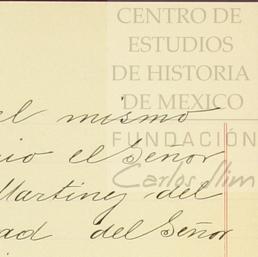 CENTRO DE
ESTUDIOS
DE HISTORIA
DE MEXICO
FUNDACIÓN
Carlos Slim
el mismo
el Señor
Martinez del
del Señor